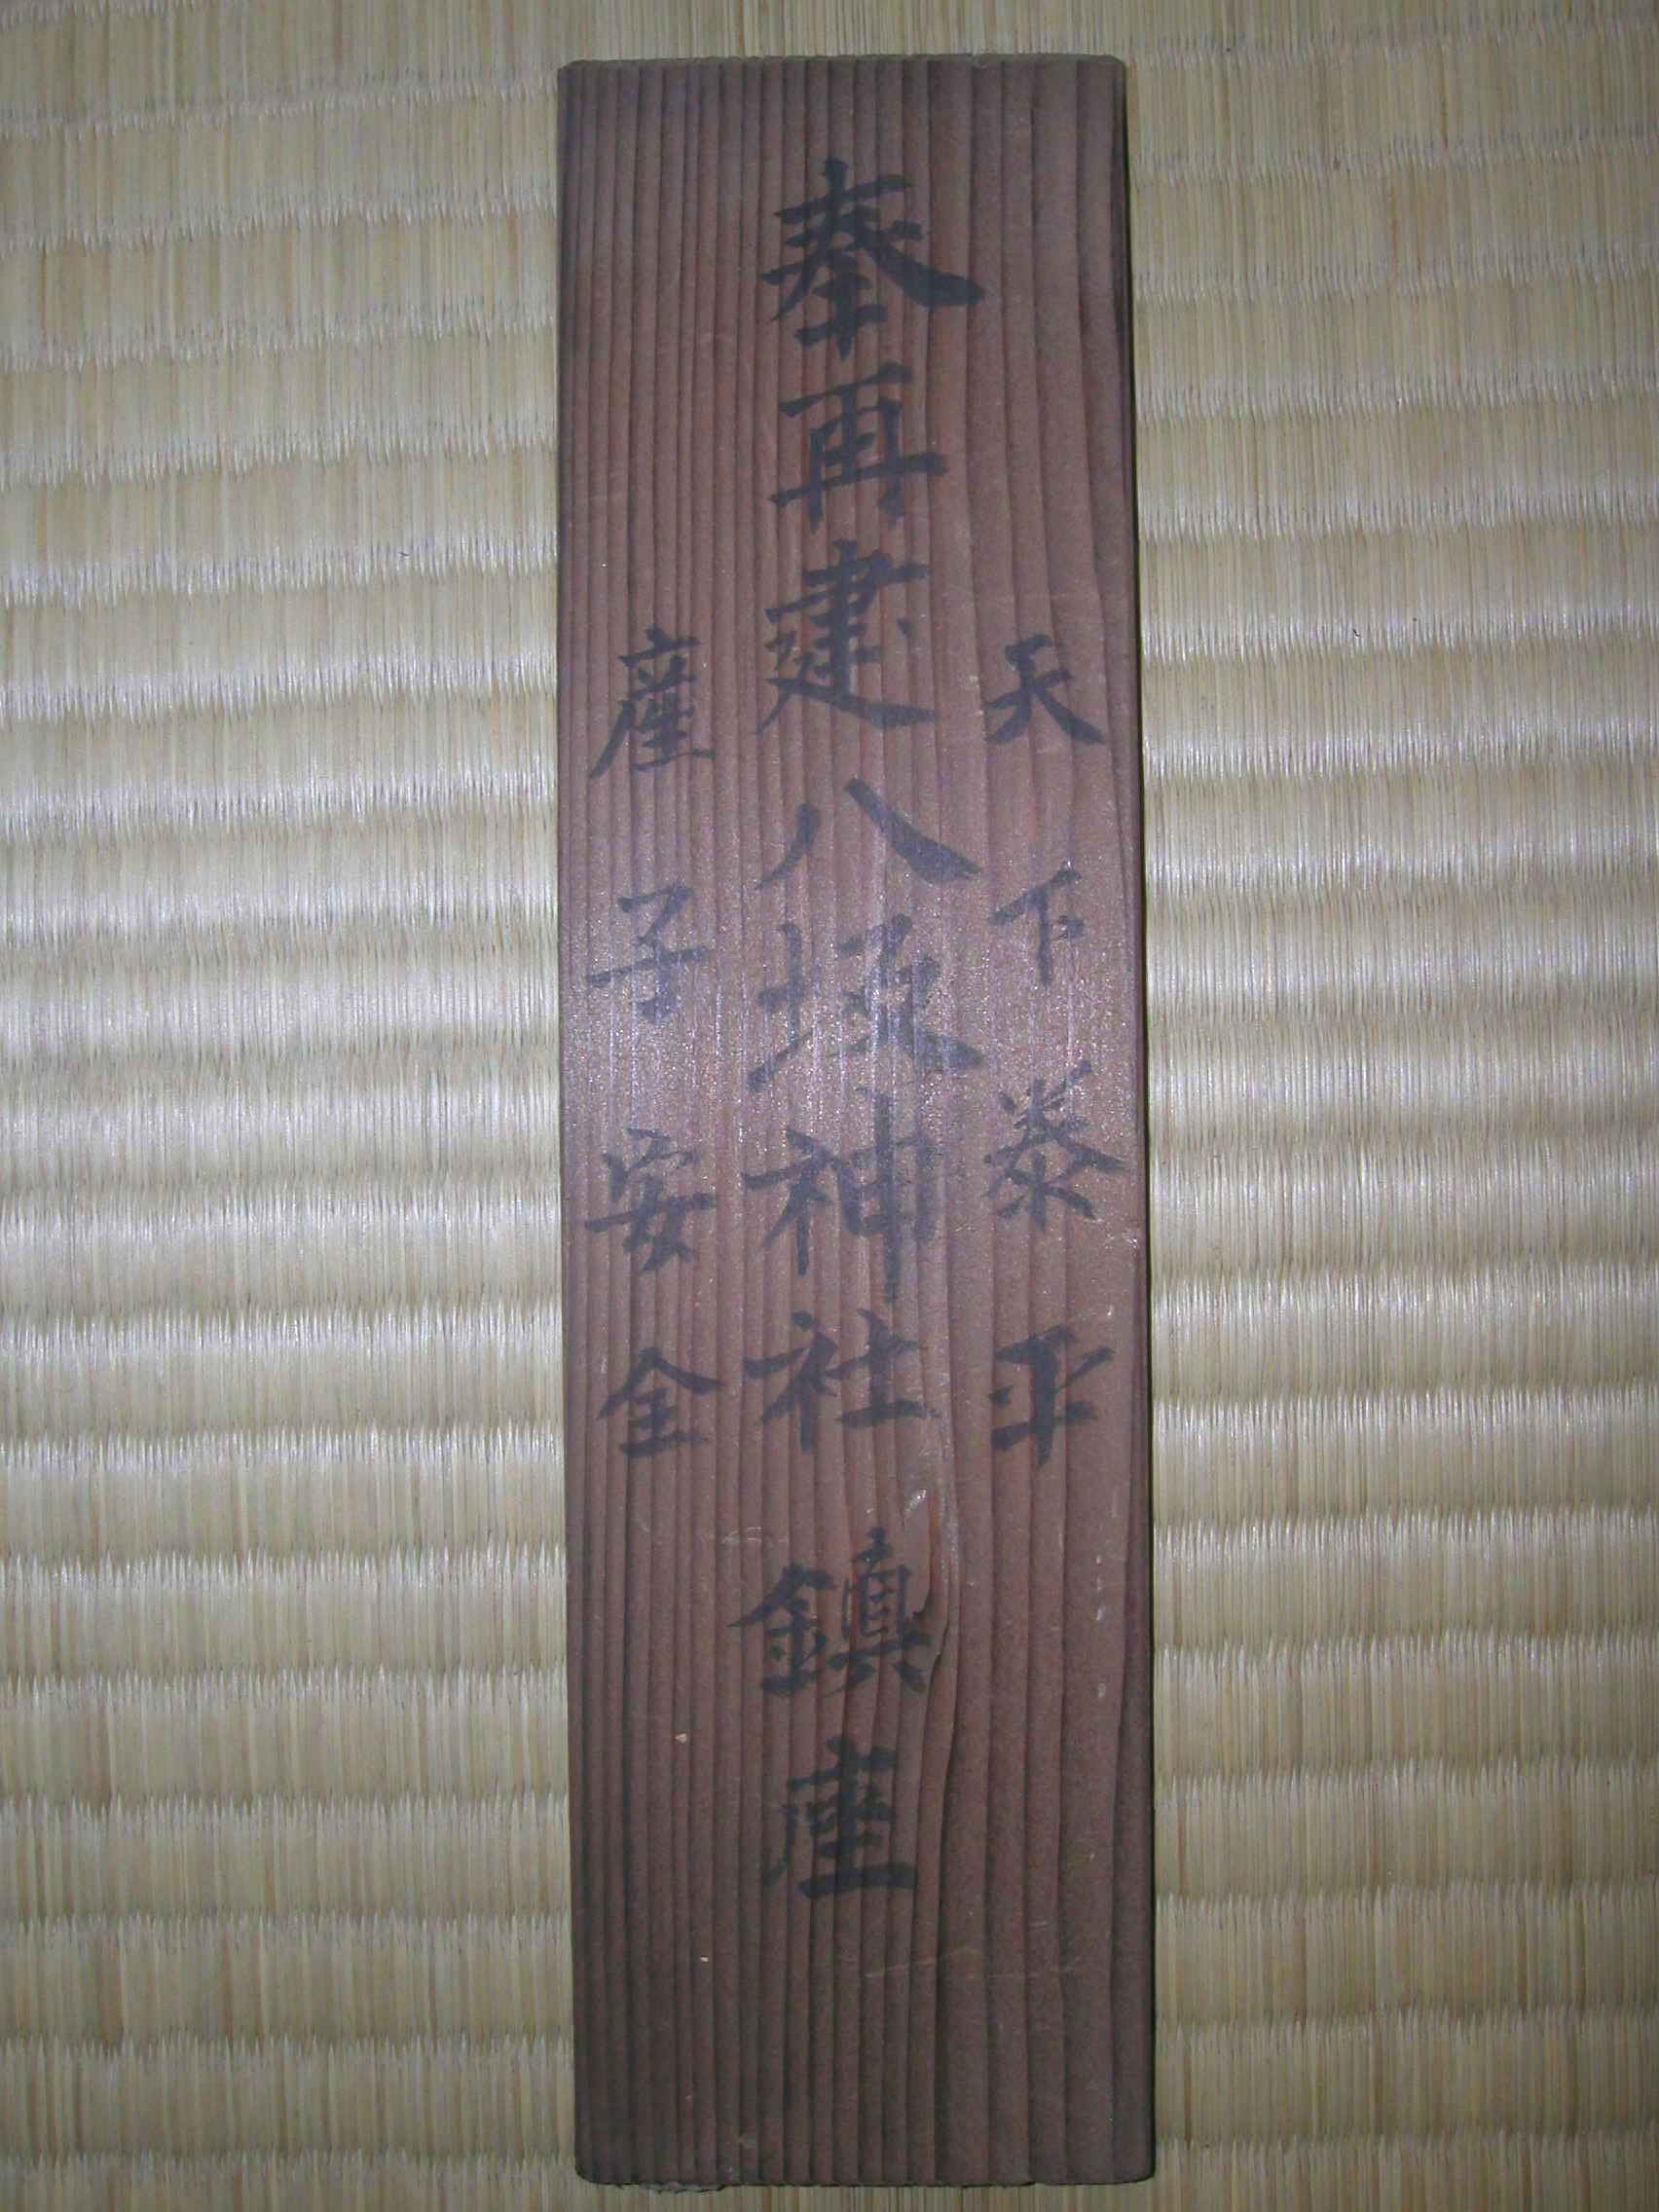 天下泰平
奉再建八坂神社鎮座
産子安全